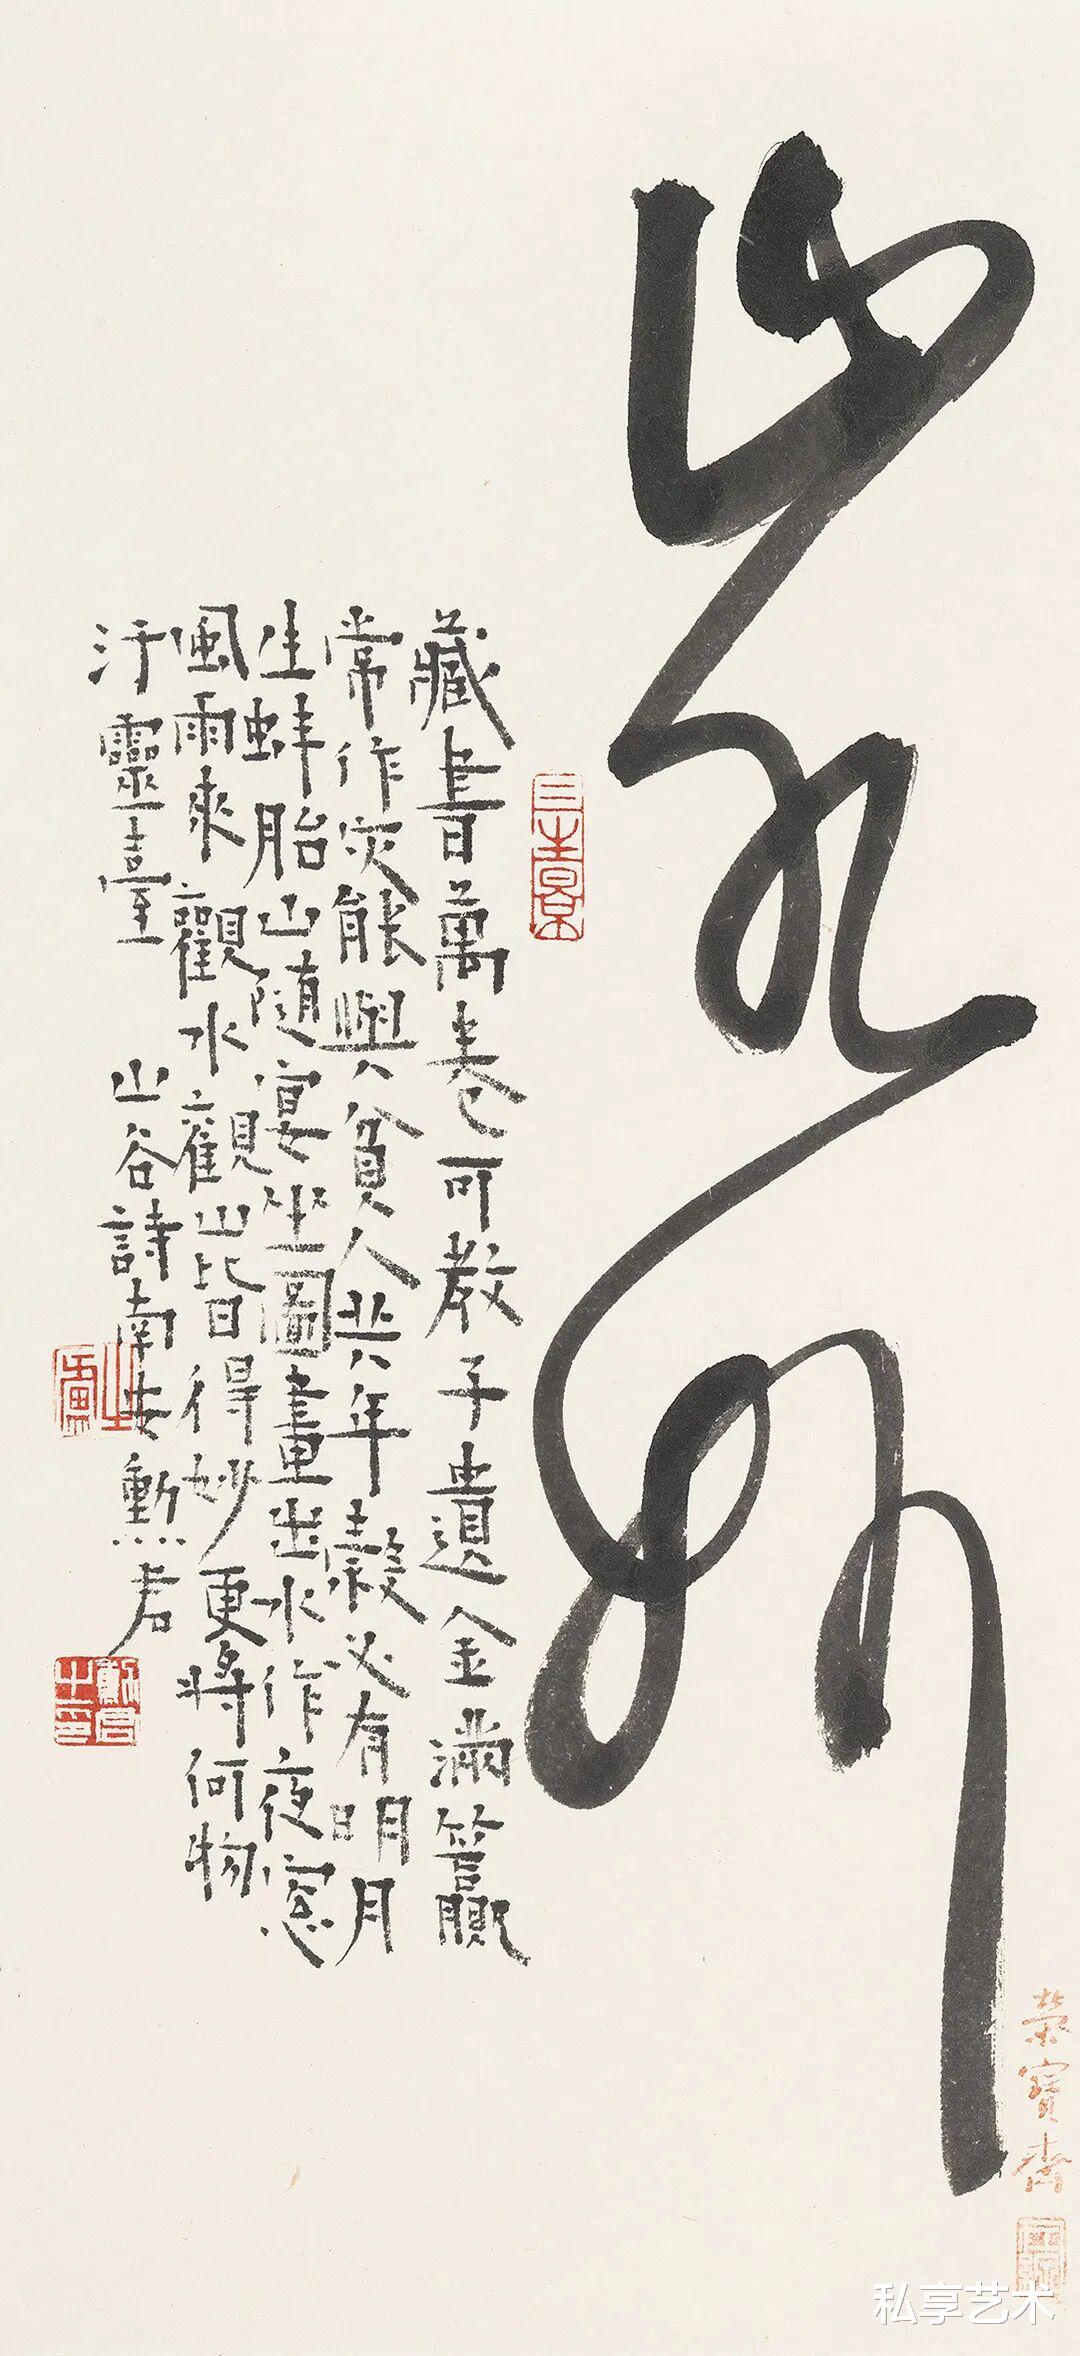 藏書萬卷可教子遺金滿籯
常作災能與貧人共年穀必有明月
生蚌胎山隨宴坐圖畫出水作夜窓
風雨來觀水觀山皆得妙更將何物
汙靈臺 山谷詩南安勳君
榮寶齋
私享艺术